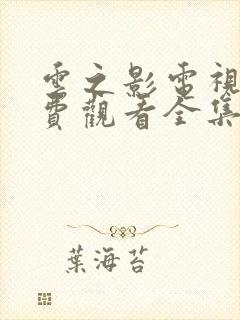 雲之影電視
費觀看全集
葉海苔